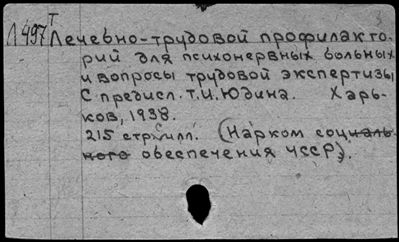 Л497Т Лечебно-трудовой профилакто-
рий для психонервных больных
и вопросы трудовой экспертизы
С предисл. Т.И. Юдина. Харь-
ков, 1938.
215 стр. с илл. (Нарком социаль-
ного обеспечения УССР).